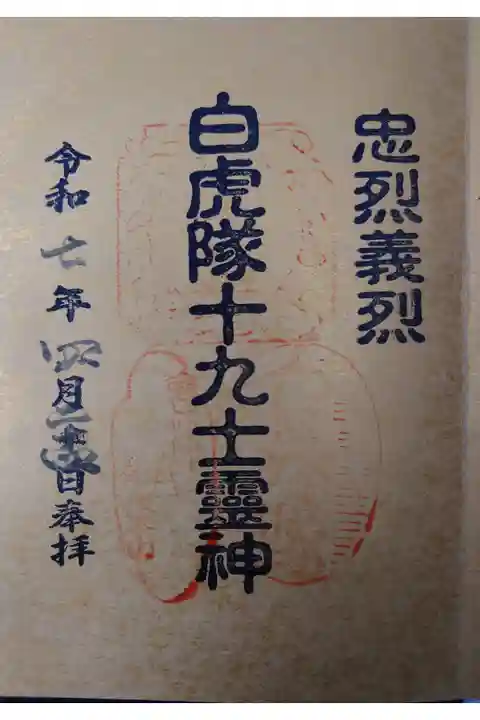 忠烈義烈
白虎隊十九士靈神
令和七年四月二十日奉拝